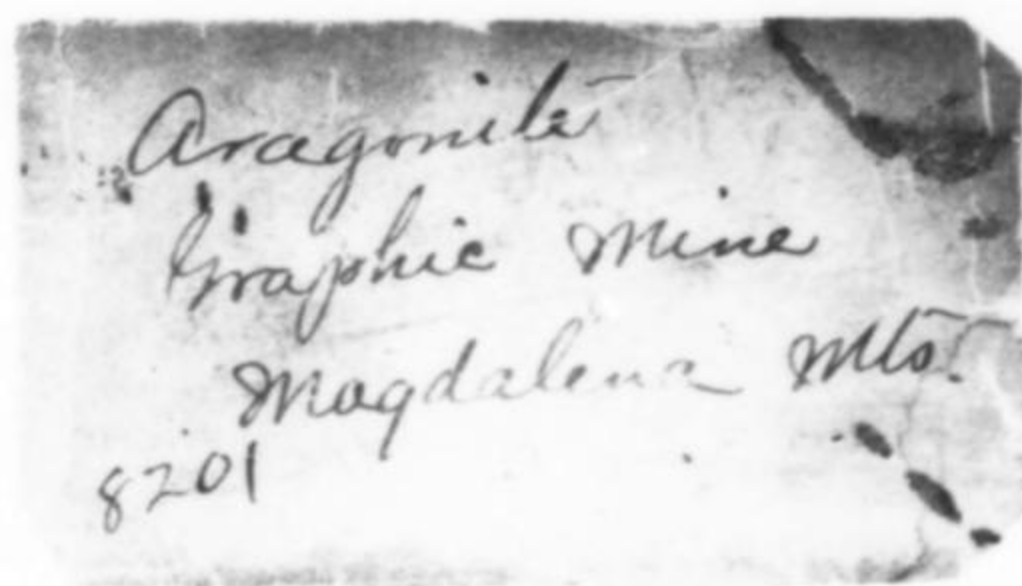 Aragonite
Graphic Mine
Magdalena Mts.
8201